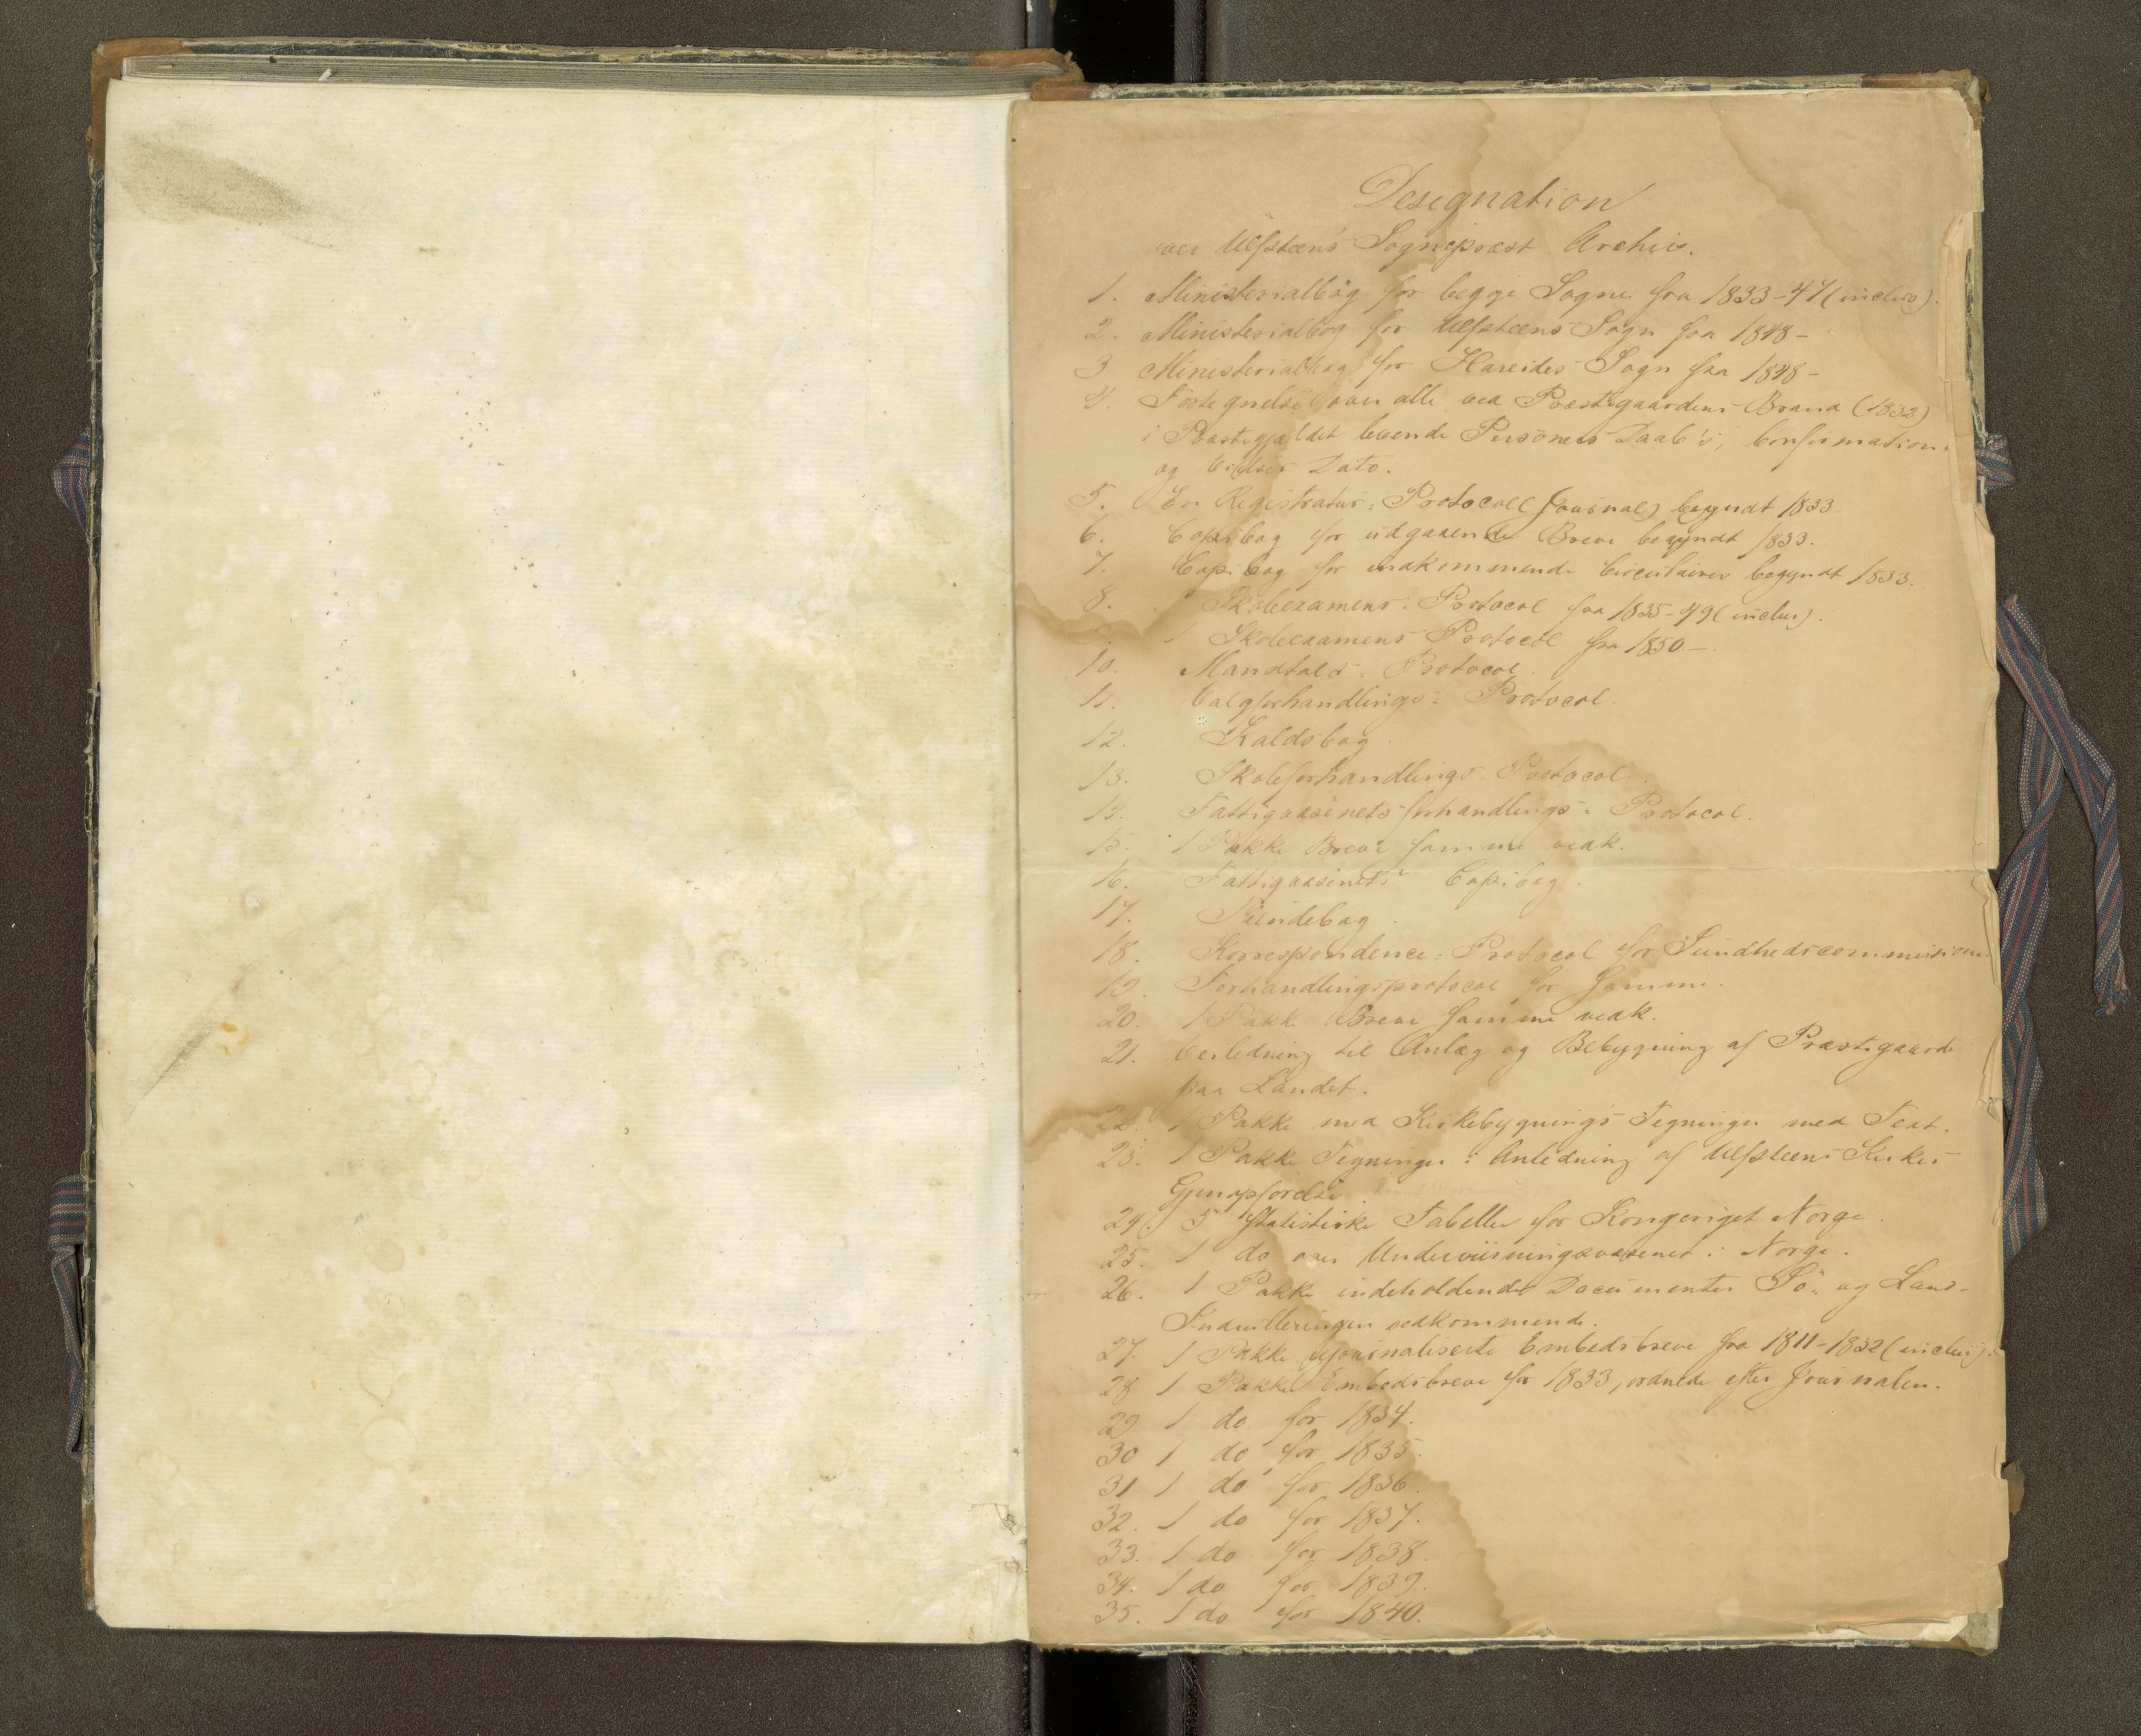 Designation
over Ulfsteens Sognepræst Archiv.
1. Ministerialbog for begge Sogne fra 1833-47 (inclus).
2. Ministerialbog for Ulfsteens Sogn fra 1848-
3 Ministerialbog for Hareides Sogn fra 1848-
4. Fortegnelse over alle ved Præstegaardens Brand (1832)
i Præstegjældet levende Personers Daab's, Confirmations
og Vielses Dato.
5. En Registratur: Protocoll (Journal) begyndt 1833.
6. Copibog for udgaaende Breve begyndt 1833.
7. Copibog for indkommende Circulairer begyndt 1833.
8. 1 Skoleexamens: Protocol fra 1835-49 (inclus).
1 Skoleexamens Protocol fra 1850-.
10. Mandtals: Protocol.
11. Valgforhandlings: Protocol.
12. Kaldsbog.
13. Skoleforhandlings Protocol.
14. Fattigvæsenets forhandlings: Protocol.
15. 1 Pakke Breve samme vedk.
16. Fattigvæsenets Copibog.
17. Tiendebog.
18. Korrespondence: Protocol for Sundhedscommissionen
19. Forhandlingsprotocol for Samme.
20. 1 Pakke Breve samme vedk.
21. Veiledning til Anlæg og Bebygning af Præstegaarde
paa Landet.
22. 1 Pakke med Kirkebygnings Tegninger med Text.
23. 1 Pakke Tegninger i Anledning af Ulfsteens Kirkes
Gjenopførelse
24. 5 Statistiske Tabeller for Kongeriget Norge.
25. 1 do over Underviisningsvæsenet i Norge.
26. 1 Pakke indeholdende Documenter Sö- og Land-
Indrulleringen vedkommende.
27. 1 Pakke ujournaliserte Embedsbreve fra 1811-1832 (inclus).
28 1 Pakke Embedsbreve for 1833, ordnede efter Journalen.
29 1 do for 1834.
30 1 do for 1835.
31 1 do for 1836.
32. 1 do for 1837.
33. 1 do for 1838.
34. 1 do for 1839.
35. 1 do for 1840.